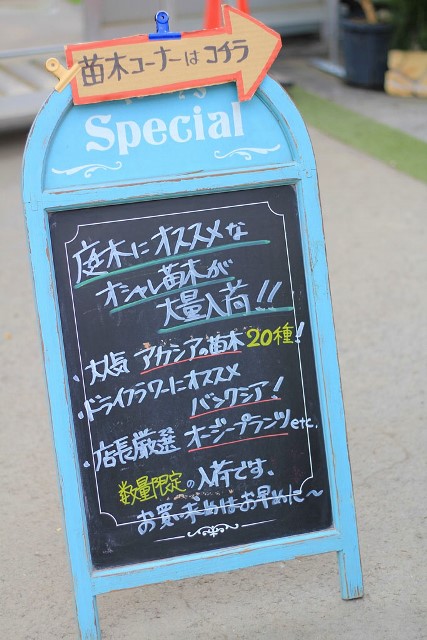 苗木コーナーはコチラ
Special
庭木にオススメな
オシャレ苗木が
大量入荷!!
・大人気 アカシアの苗木 20種!
・ドライフラワーにオススメ
バンクシア!
・店長厳選 オージープランツetc.
数量限定の入荷です、
お買い求めはお早めに~